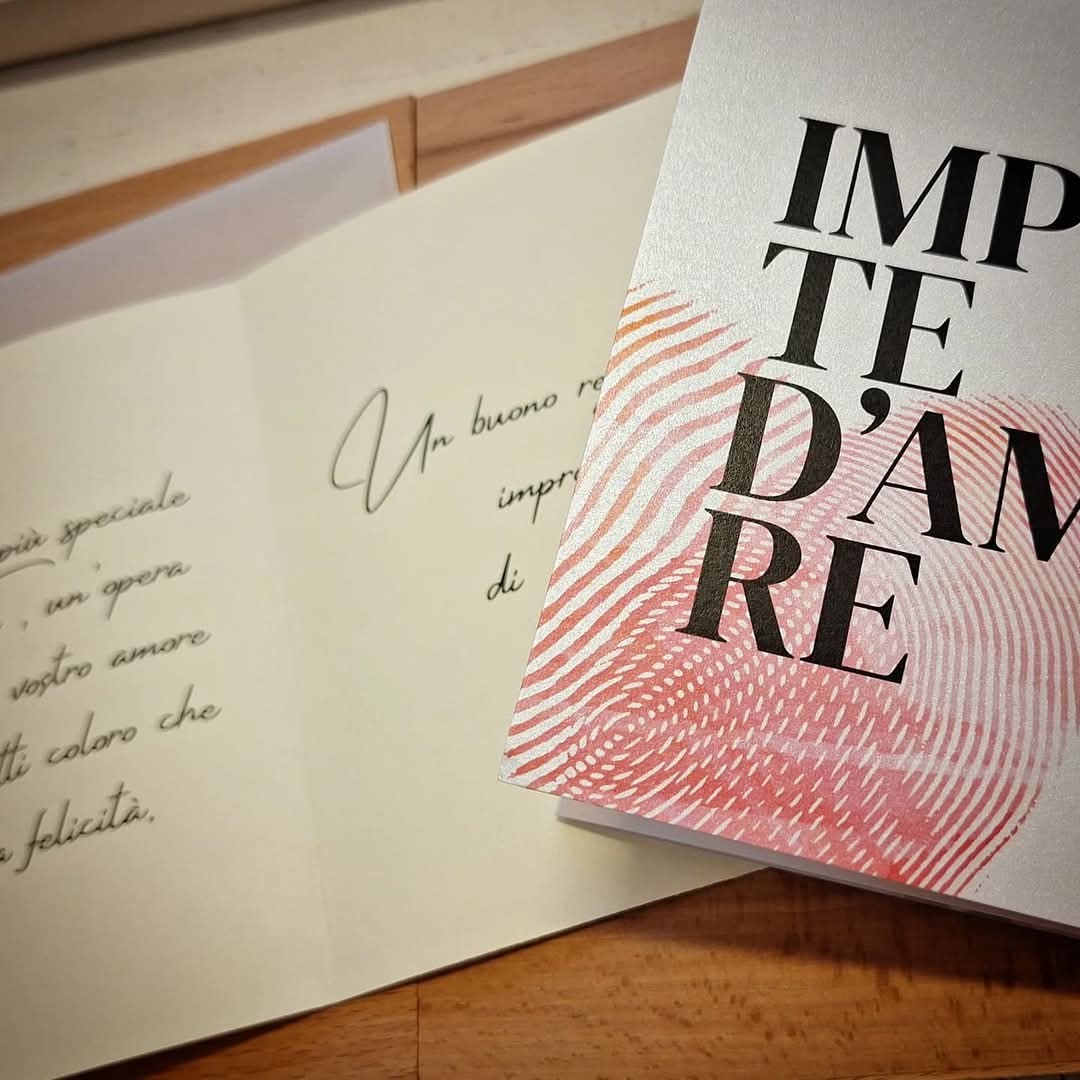 più speciale
, un'opera
vostro amore
tti coloro che
a felicità.
Un buono re
impro
di
IMP
TE
D'AM
RE